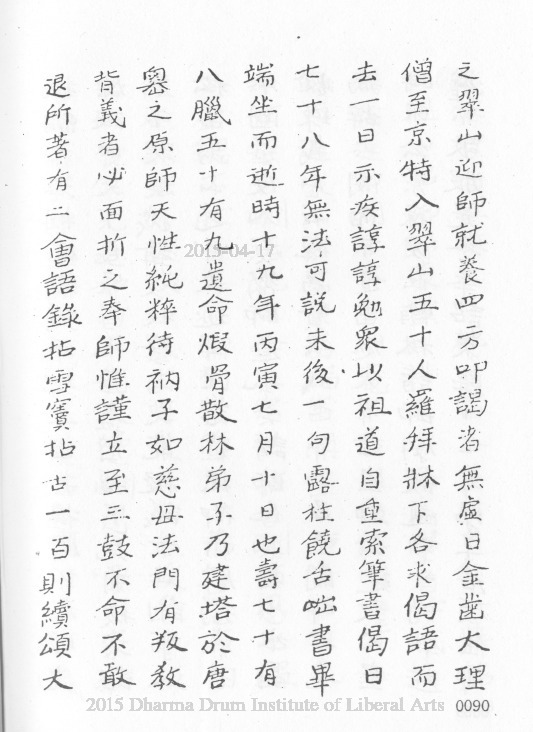 之翠山迎師就養四方叩謁者無虛日金齒大理
僧至京特入翠山五十人羅拜牀下各求偈語而
去一日示疾諄諄勉衆以祖道自重索筆書偈曰
七十八年無法可說末後一句露柱饒舌咄書畢
端坐而逝時十九年丙寅七月十日也壽七十有
八臘五十有九遺命煆骨散林弟子乃建塔於唐
嶴之原師天性純粹待衲子如慈母法門有叛教
背義者必面折之奉師惟謹立至三鼓不命不敢
退所著有二會語錄拈雪竇拈古一百則續頌大
2015-04-17
2015 Dharma Drum Institute of Liberal Arts 0090